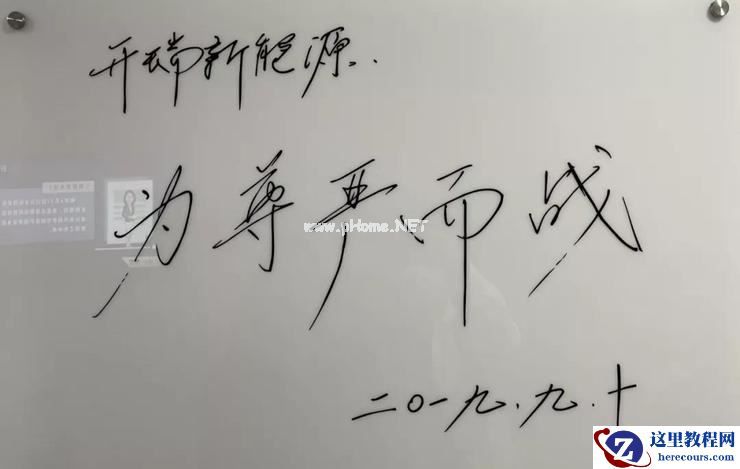 开端新能源..
为尊严而战
www.pHome.NET
二〇一九.九.十
这里教程网
herecours.com